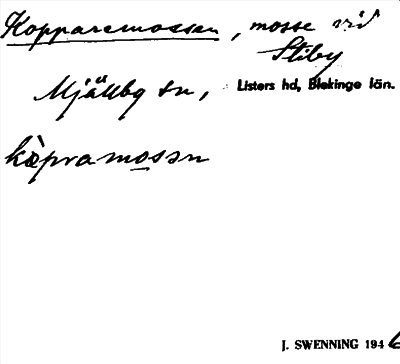 Kopparemossen, mosse vid
Stiby
Mjällby sn, Listers hd, Blekinge län.
kòpramosən
J. SWENNING 1946